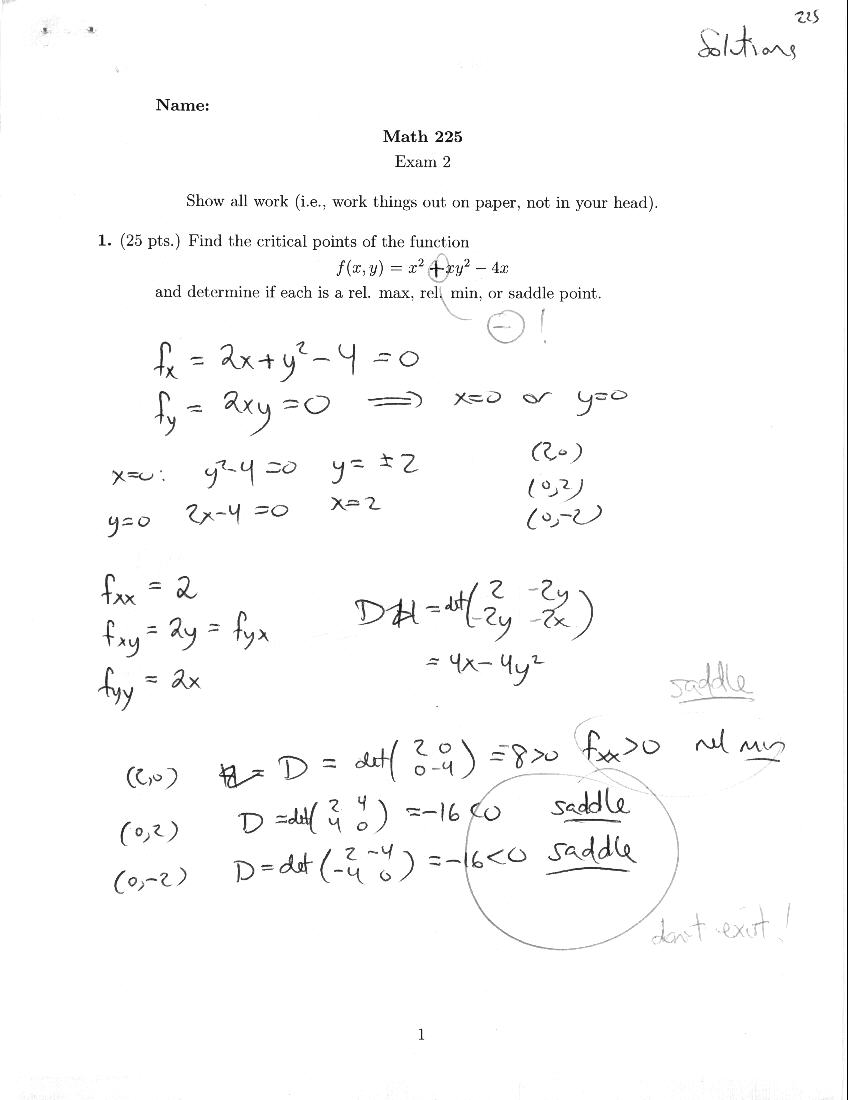 225
Solutions
Name:
Math 225
Exam 2
Show all work (i.e., work things out on paper, not in your head).
1. (25 pts.) Find the critical points of the function
f(x, y) = x² + xy² − 4x
and determine if each is a rel. max, rel. min, or saddle point.
− !
fx = 2x + y² − 4 = 0
fy = 2xy = 0 ⟹ x=0 or y=0
x=0: y²−4=0 y= ±2
y=0 2x−4=0 x=2
(2,0)
(0,2)
(0,−2)
fxx = 2
fxy = 2y = fyx
fyy = 2x
D = det( 2 −2y
−2y −2x )
= 4x − 4y²
saddle
(2,0) D = det( 2 0
0 −4 ) = −8>0 fxx>0 rel min
(0,2) D = det( 2 4
4 0 ) = −16<0 saddle
(0,−2) D = det( 2 −4
−4 0 ) = −16<0 saddle
don't exist!
1